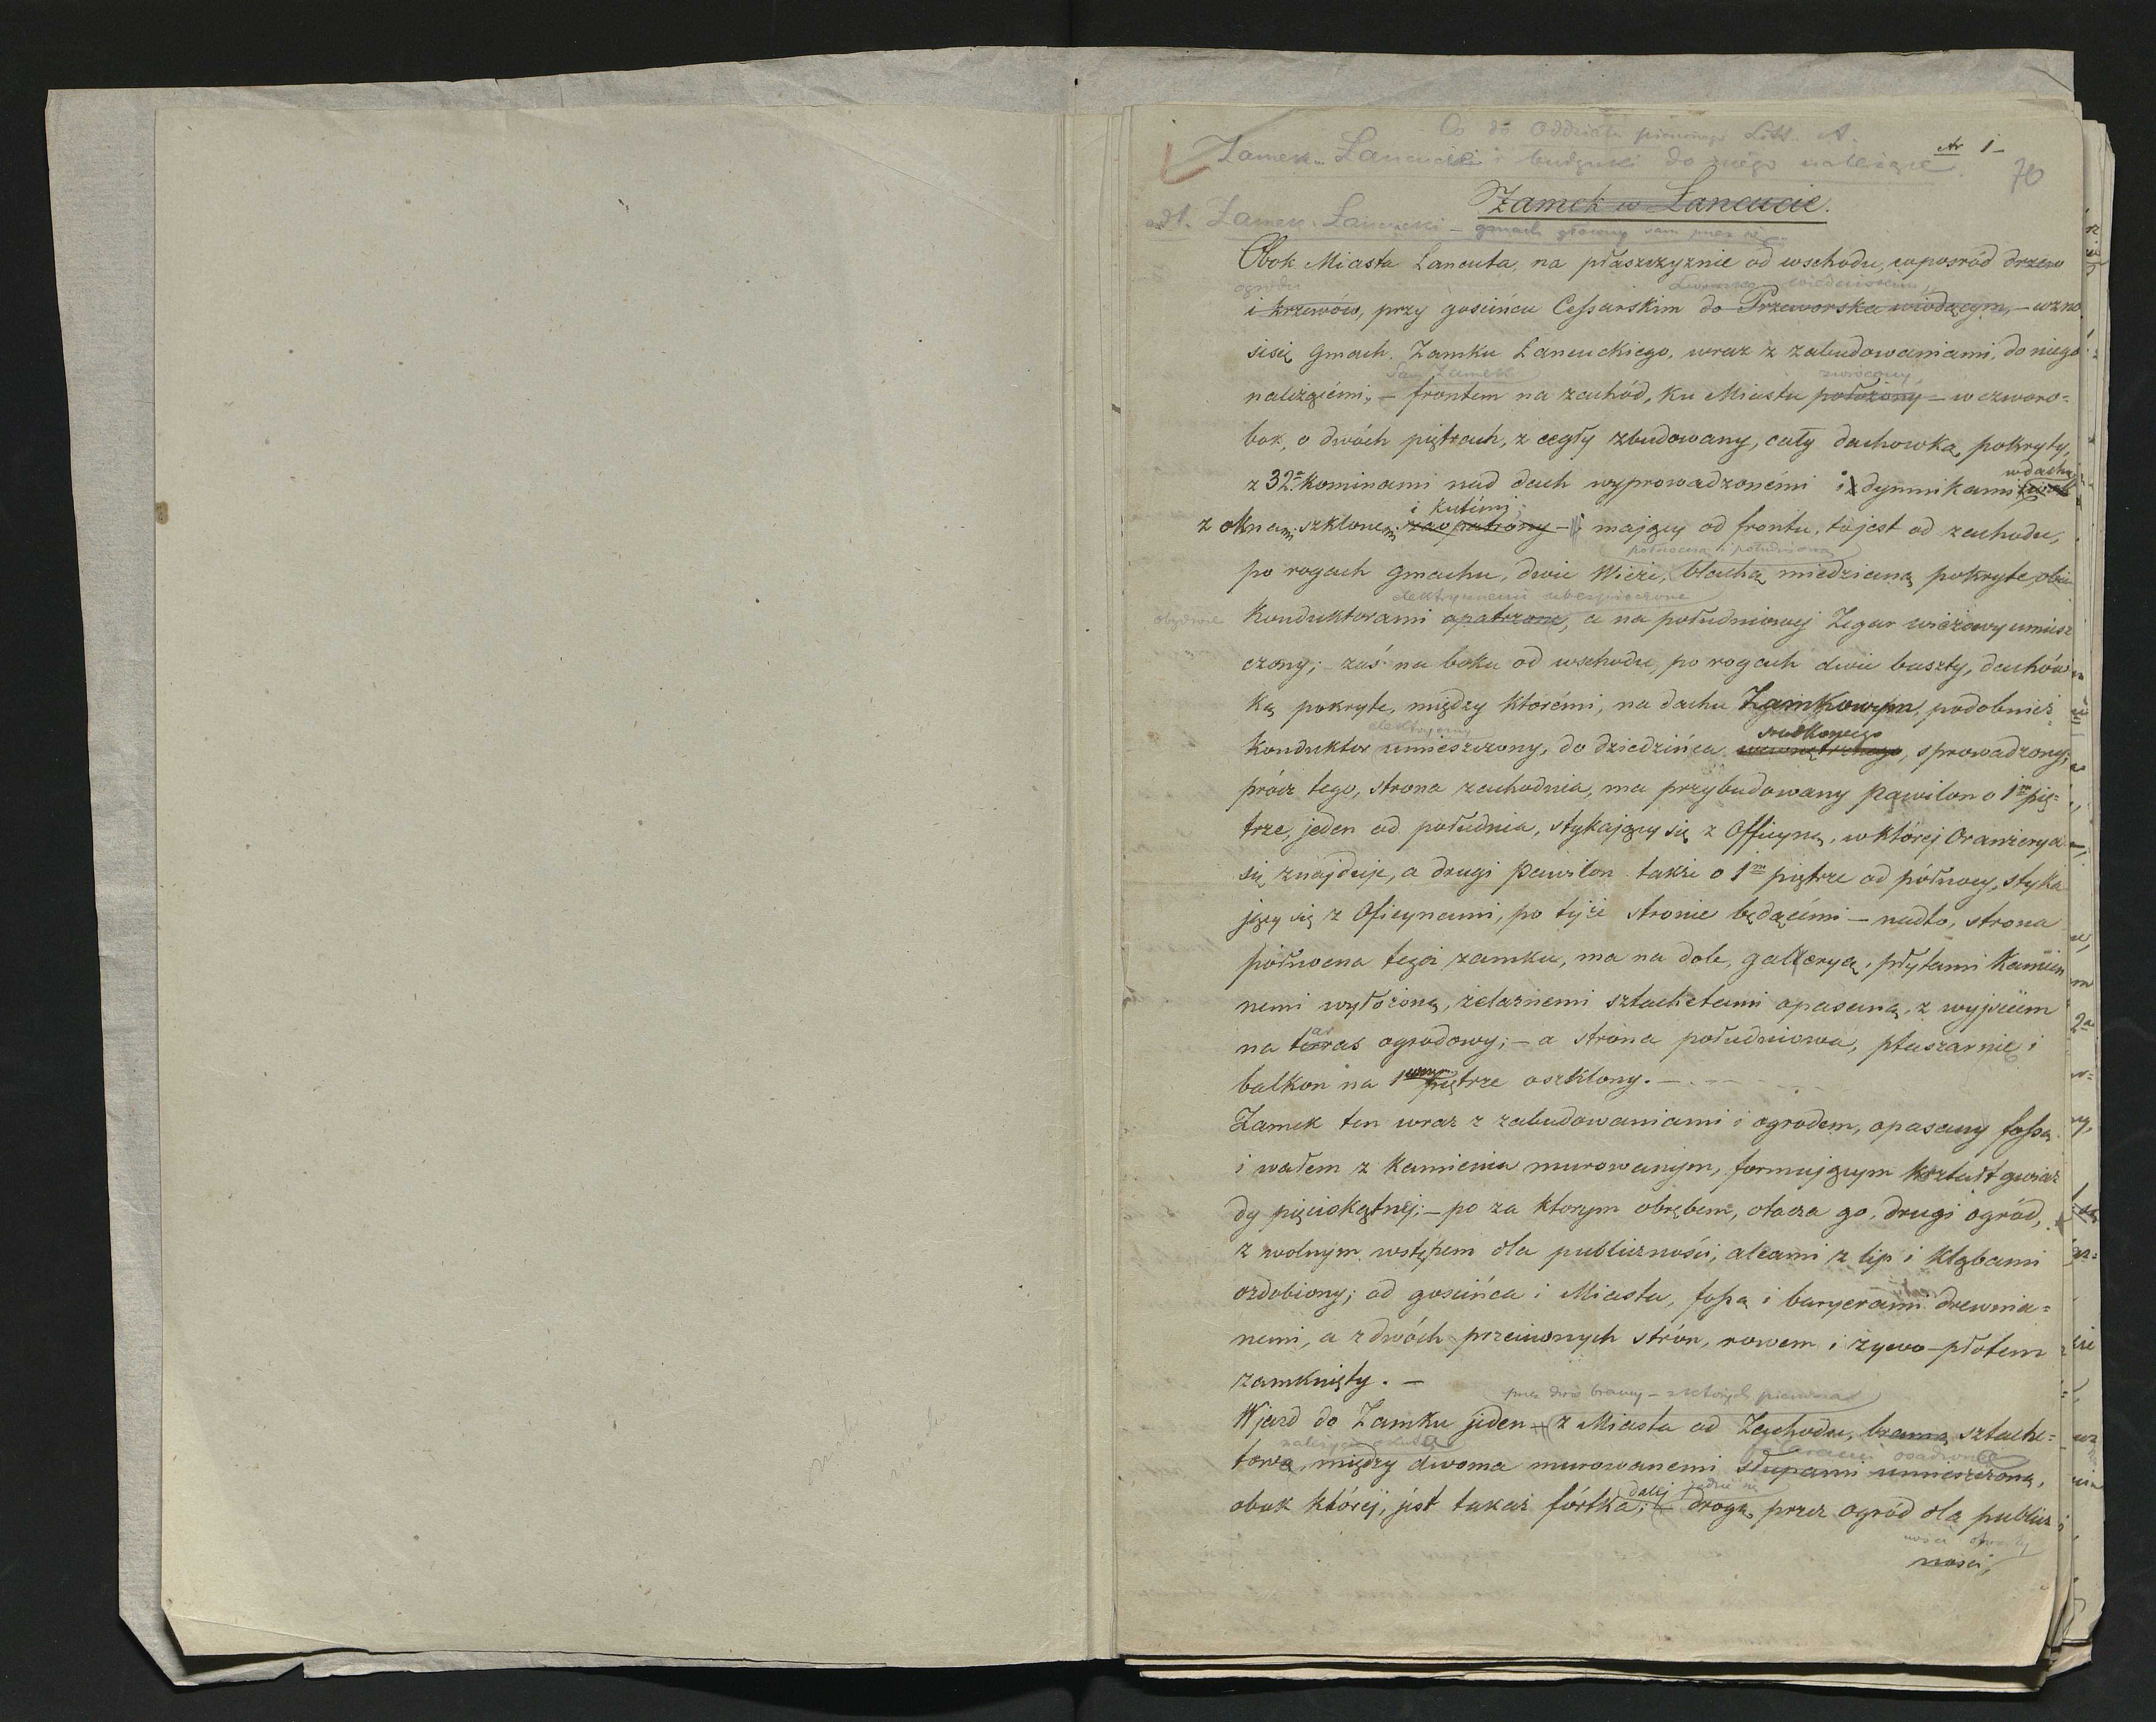 Co do Oddziału pierwszego Litt. A.
Nr 1-
Zamek Łańcucki i budynki do niego należące
70
Zamek w Łancucie.
ad 1. Zamek Łańcucki – gmach głowny sam przez się
Obok Miasta Łancuta, na płaszczyznie od wschodu, wpośród drzew
ogrodu
i krzewów, przy gościńcu Cessarskim do Przeworska wiodącym, – wzno
sisię Gmach Zamku Łancuckiego, wraz z zabudowaniami, do niego
Sam Zamek zwrocony
należącémi; – frontem na zachód, ku Miastu położony – w czworo=
bok, o dwóch piętrach, z cegły zbudowany, cały dachowką pokryty,
w dachu
z 32a Kominami nad dach wyprowadzonémi i z dymnikami
i Kutémi;
z oknami szklonemi zaopatrony – i mający od frontu, tojest od zachodu,
północną i południową
po rogach Gmachu, dwie Wieże, blachą miedzianą pokryte, obie
elektrycznemi ubespieczone
obydwie Konduktorami opatrzone, a na południowej Zegar wieżowy umiesz
czony; zaś na boku od wschodu, po rogach dwie baszty, dachów
ką pokryte, między któremi, na dachu Zamkowym, podobnież
elektryczny
srodkowego
Konduktor umieszczony, do dziedzińca wewnętrznego, sprowadzony;
prócz tego, strona zachodnia, ma przybudowany Pawilon o 1m pię=
trze, jeden od południa, stykający się z Officyną, w której Oranżerya
się znajduje, a drugi Pawilon także o 1m piętrze od północy, styka
jący się z Oficynami, po tyże stronie będącémi – nadto, strona
północna tegoż zamku, ma na dole, galleryą, płytami Kamien
nemi wyłożoną, żelaznemi sztachetami opasaną, z wyjściem
na taras ogrodowy; – a strona południowa, ptaszarnię i
balkon na 1wszym piętrze oszklony. –
Zamek ten wraz z zabudowaniami i ogrodem, opasany fossą
i wałem z Kamienia murowanym, formującym kształt gwiaz
dy pięciokątnej; – po za ktorym obrębem, otacza go, drugi ogród,
z wolnym wstępem dla publiczności, aleami z lip i kląbami
ozdobiony; od gościńca i Miasta, fossą i baryerami drewnia=
nemi, a z dwóch przeciwnych strón, rowem i żywo-płotem
zamknięty. –
przez dwie bramy – z których pierwsza
Wjazd do Zamku jeden – z Miasta od Zachodu, bramą sztache=
filarami osadzona
tową, między dwoma murowanemi słupami umieszczoną,
dalej jedzie się
obok której, jest takaż fórtka; – drogą, przez ogród dla publicz
ności otwarty
ności,